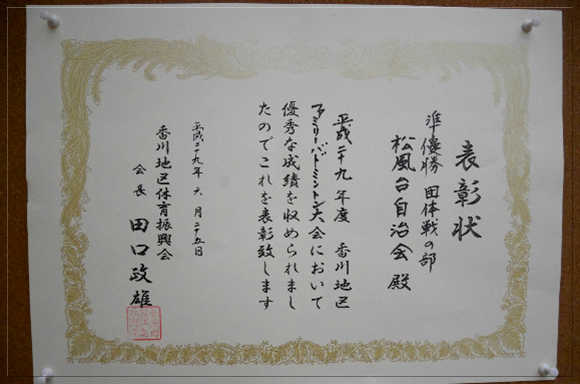 表彰状
準優勝 団体戦の部
松風台自治会 殿
平成二十九年度 香川地区
ファミリーバドミントン大会において
優秀な成績を収められまし
たのでこれを表彰致します
平成二十九年 六月二十五日
香川地区体育振興会
会長 田口政雄